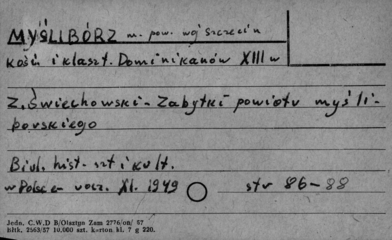 MYŚLIBÓRZ m. pow. woj szczecin
Kość i klaszt. Dominikanów XIII w
Z. Świechowski - Zabytki powiatu myśli-
borskiego
Biul. hist. szt i kult.
w Polsce rocz. XI. 1949 str 86-88
Jedn. C.W.D B/Olsztyn Zam 2776/on/ 57
blt. 2563/57 10.000 szt. karton kl. 7 g 220.